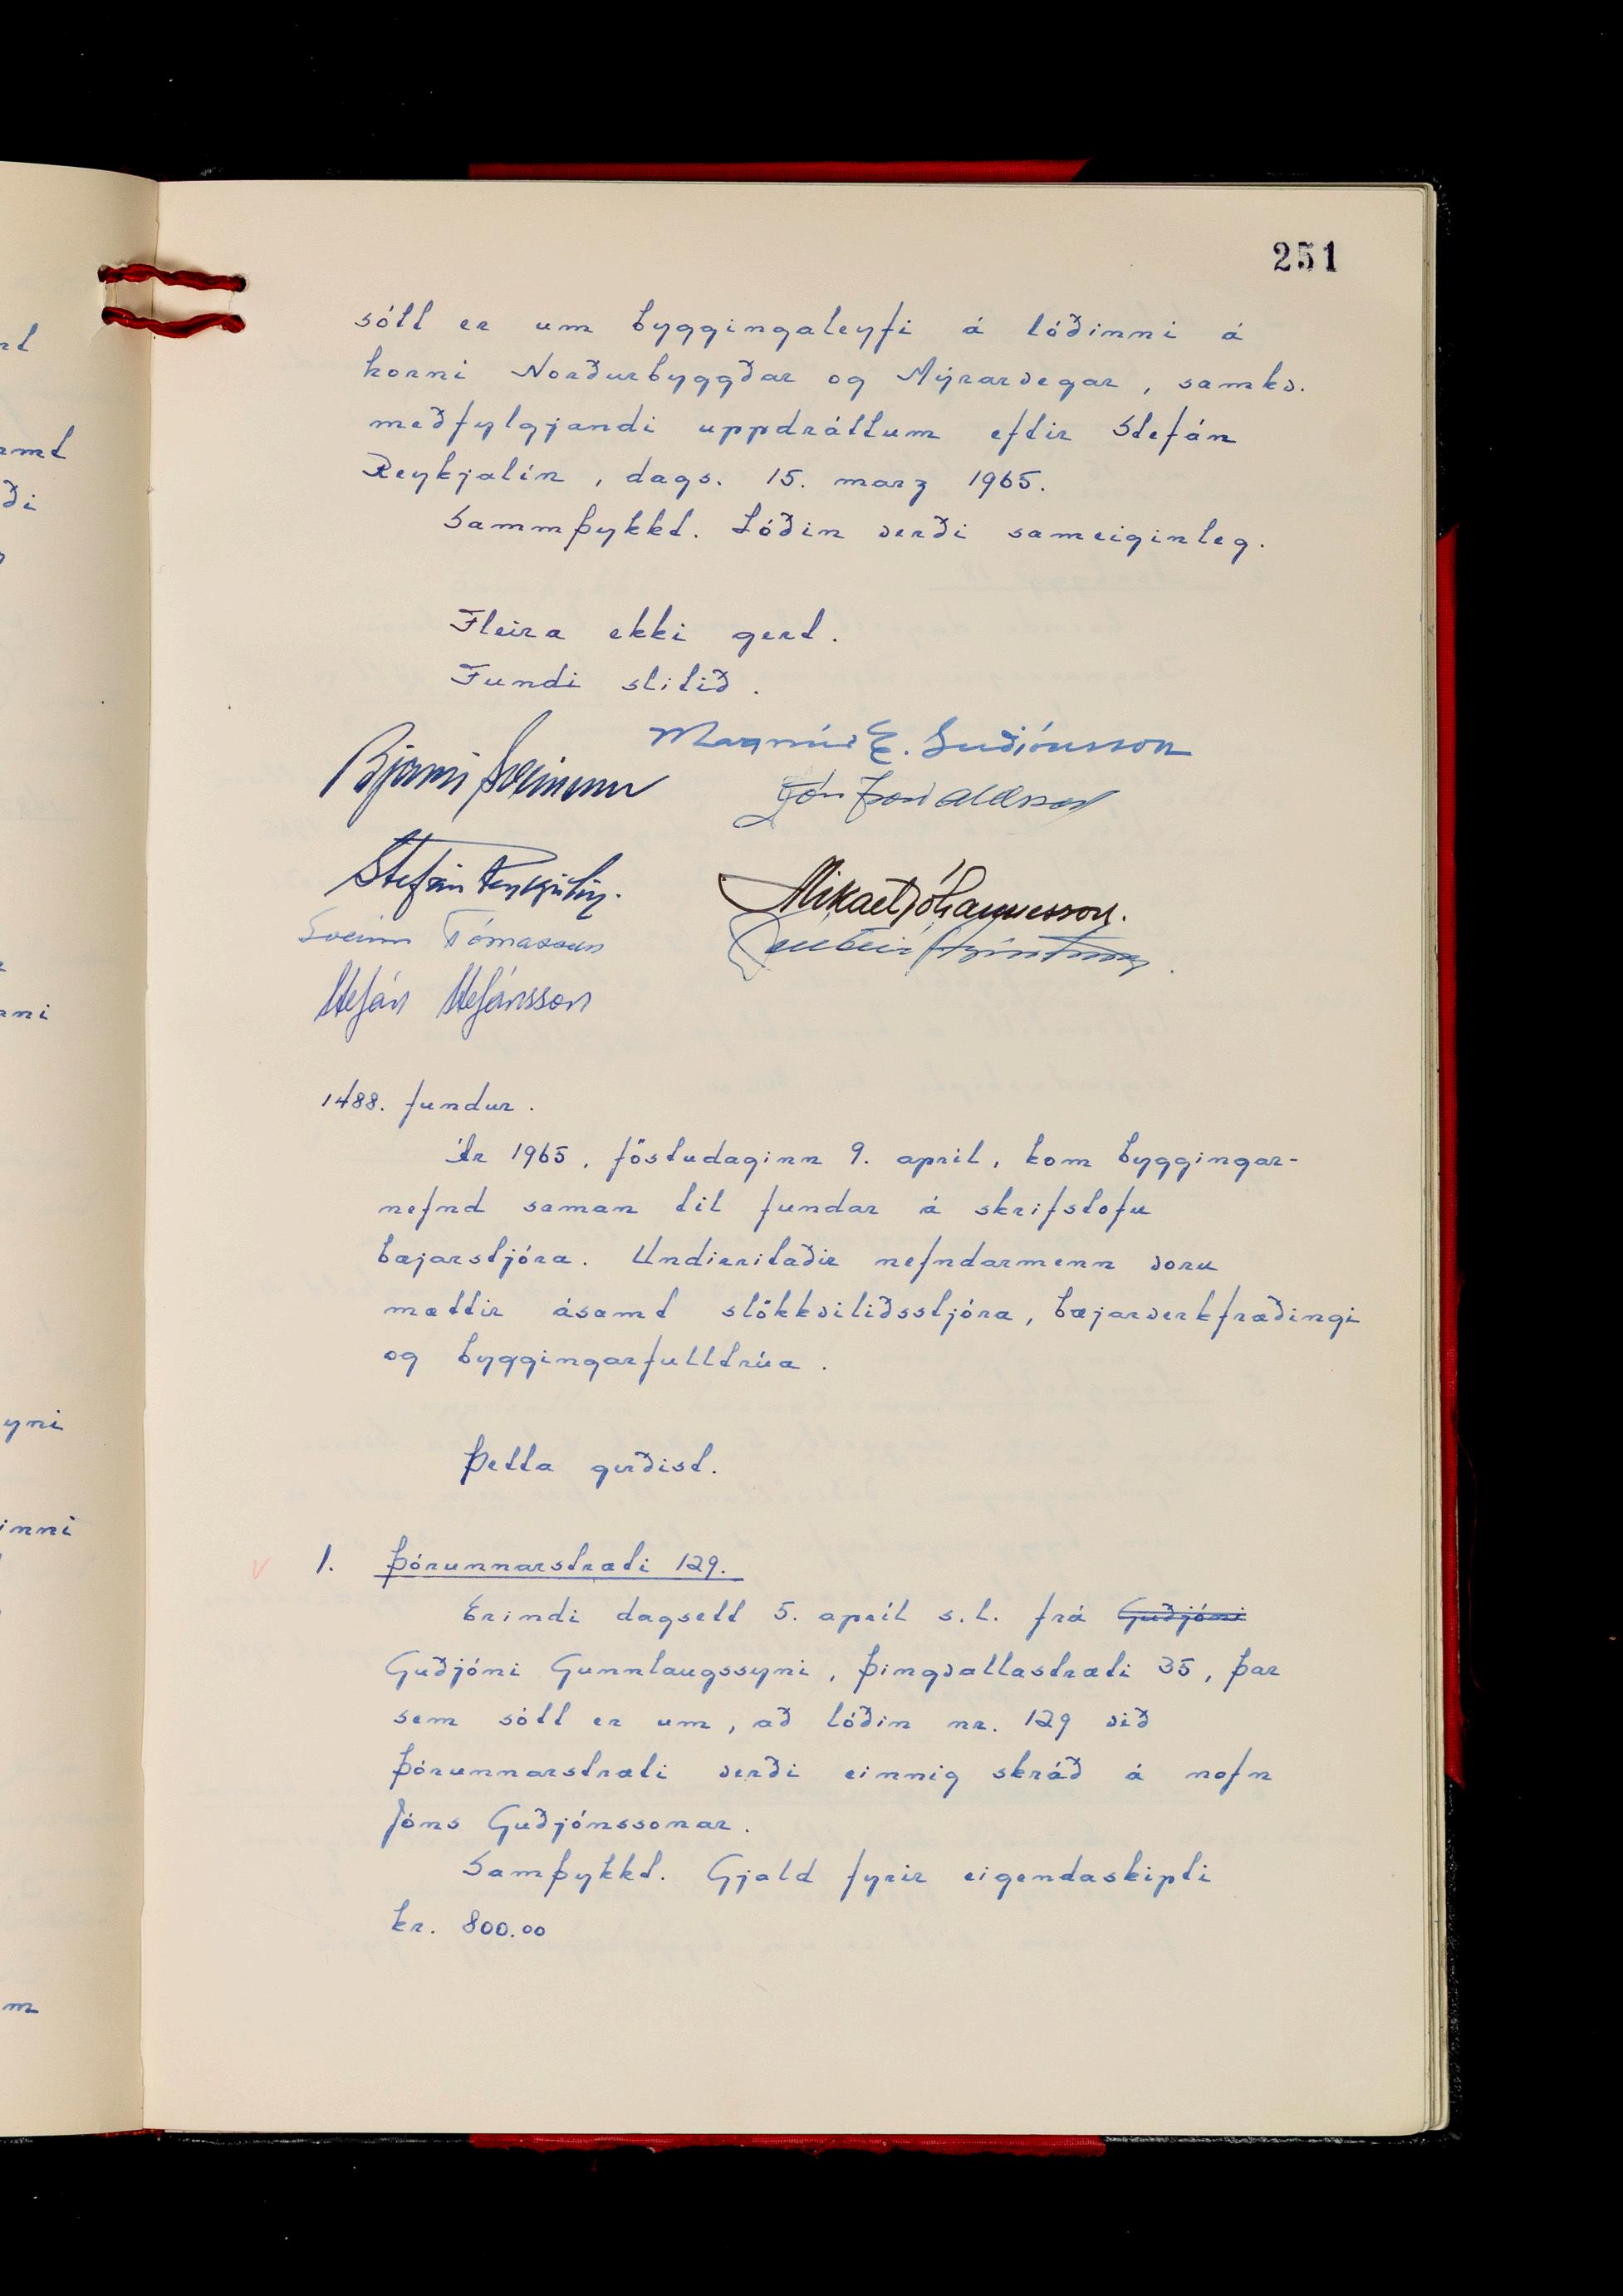 251
sótt er um byggingaleyfi á lóðinni á
horni Norðurbyggðar og Mýrarvegar, samkv.
meðfylgjandi uppdráttum eftir Stefán
Reykjalín, dags. 15. marz 1965.
Sammþykkt. Lóðin verði sameiginleg.
Fleira ekki gert.
Fundi slitið.
Magnús E. Guðjónsson
Bjarni Sveinsson
Jón
Stefán Reykjalín.
Mikael Jóhannesson.
Sveinn Tómasson
Stefán Stefánsson
1488. fundur.
Ár 1965, föstudaginn 9. apríl, kom byggingar-
nefnd saman til fundar á skrifstofu
bæjarstjóra. Undirritaðir nefndarmenn voru
mættir ásamt slökkviliðsstjóra, bæjarverkfræðingi
og byggingarfulltrúa.
Þetta gerðist.
1. Þórunnarstræti 129.
Erindi dagsett 5. apríl s.l. frá Guðjóni
Guðjóni Gunnlaugssyni, Þingvallastræti 35, þar
sem sótt er um, að lóðin nr. 129 við
Þórunnarstræti verði einnig skráð á nafn
Jóns Guðjónssonar.
Samþykkt. Gjald fyrir eigendaskipti
kr. 800.00